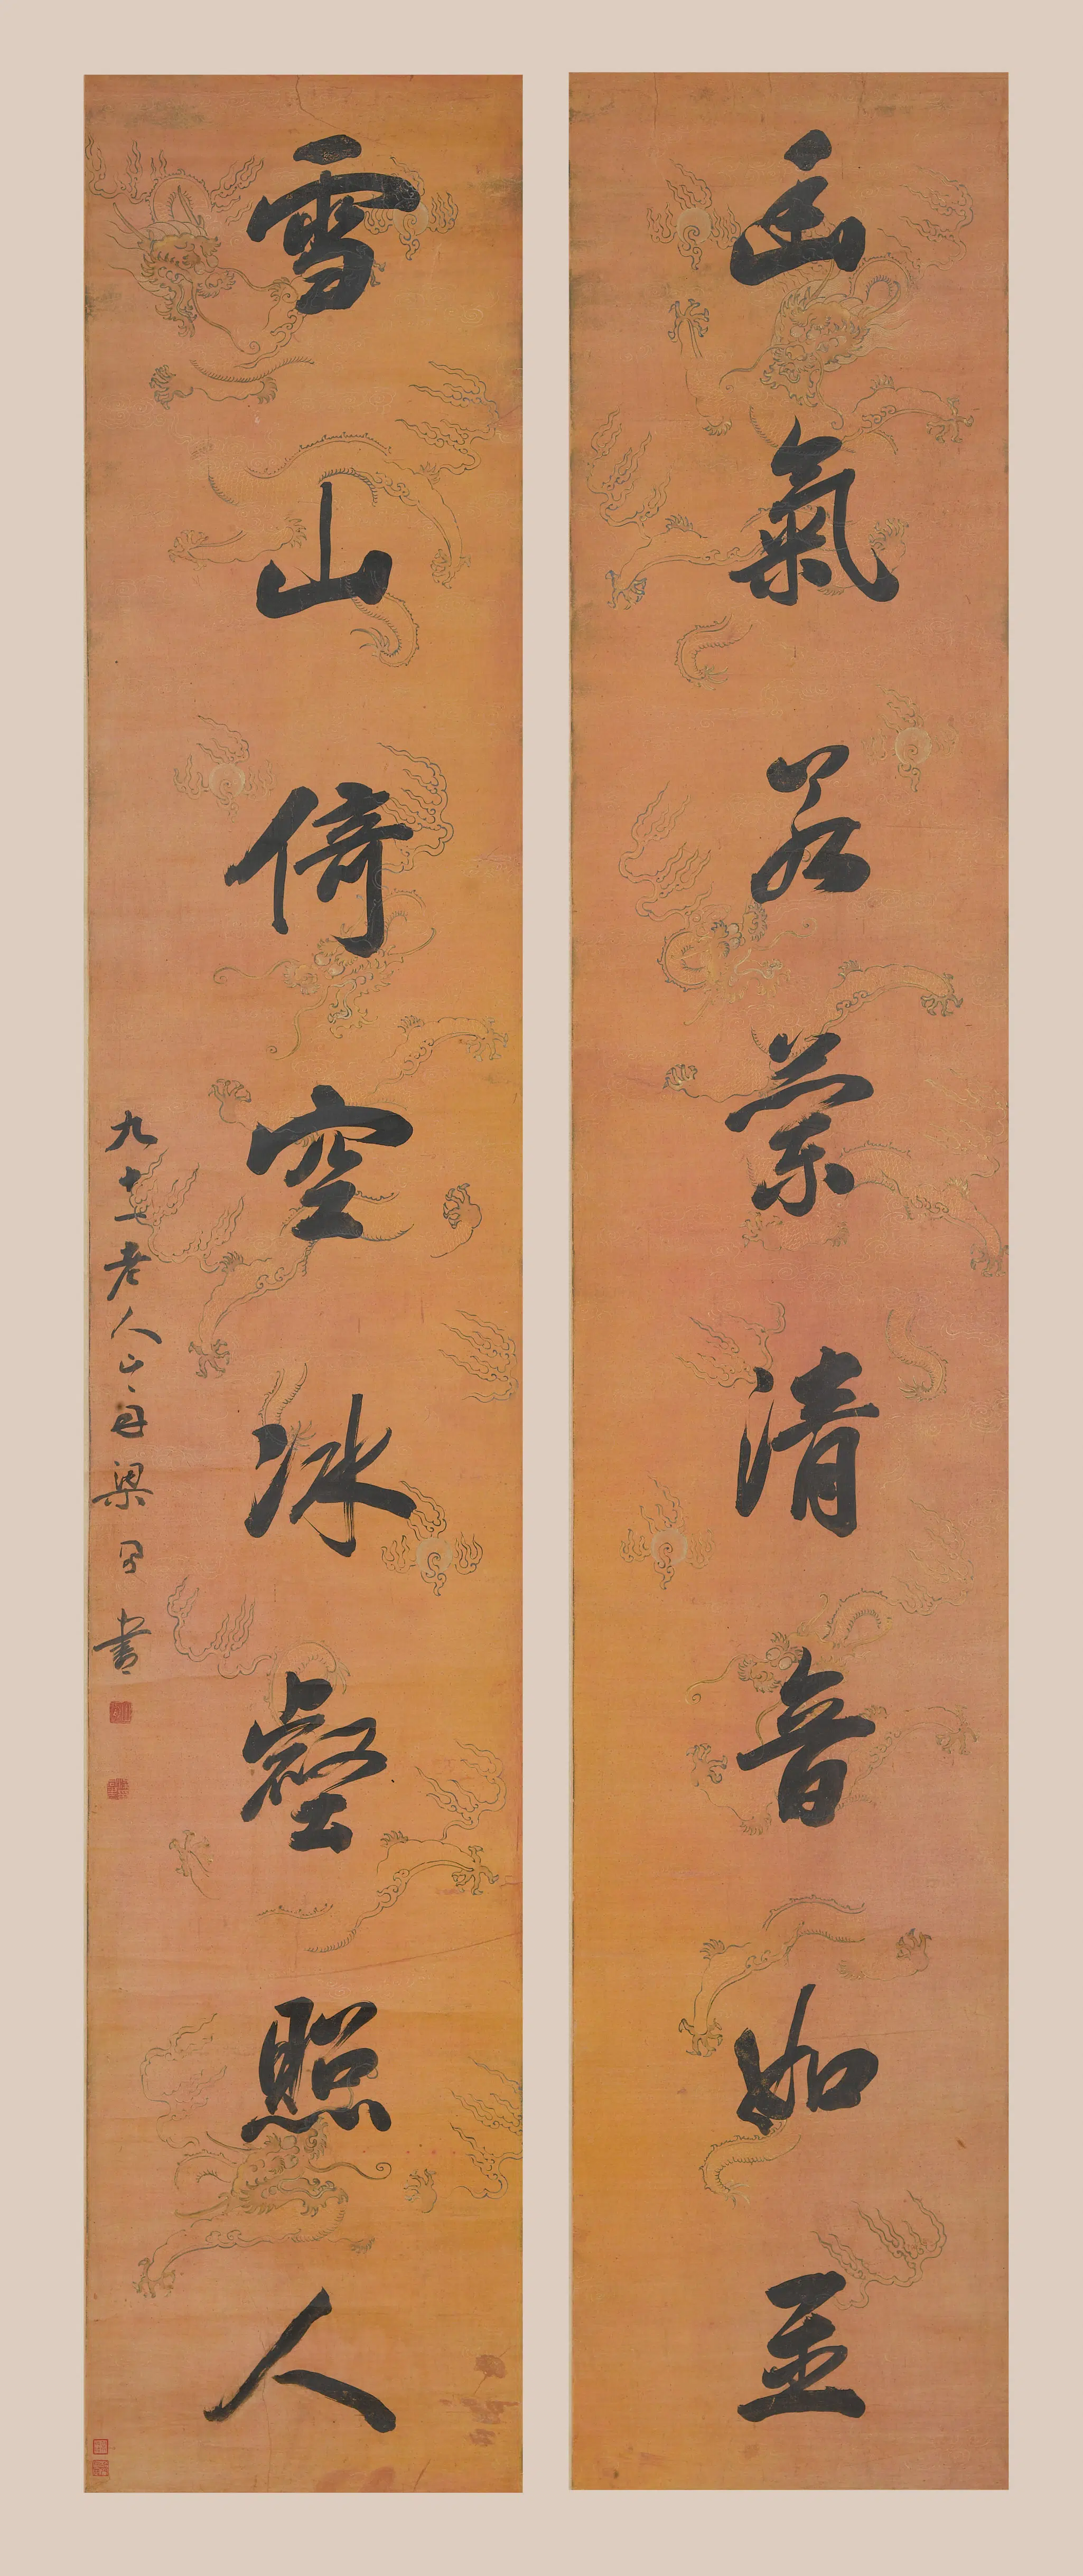 氣若蘭清音如至
雪山倚空冰壑照人
九十一老人山舟梁同書